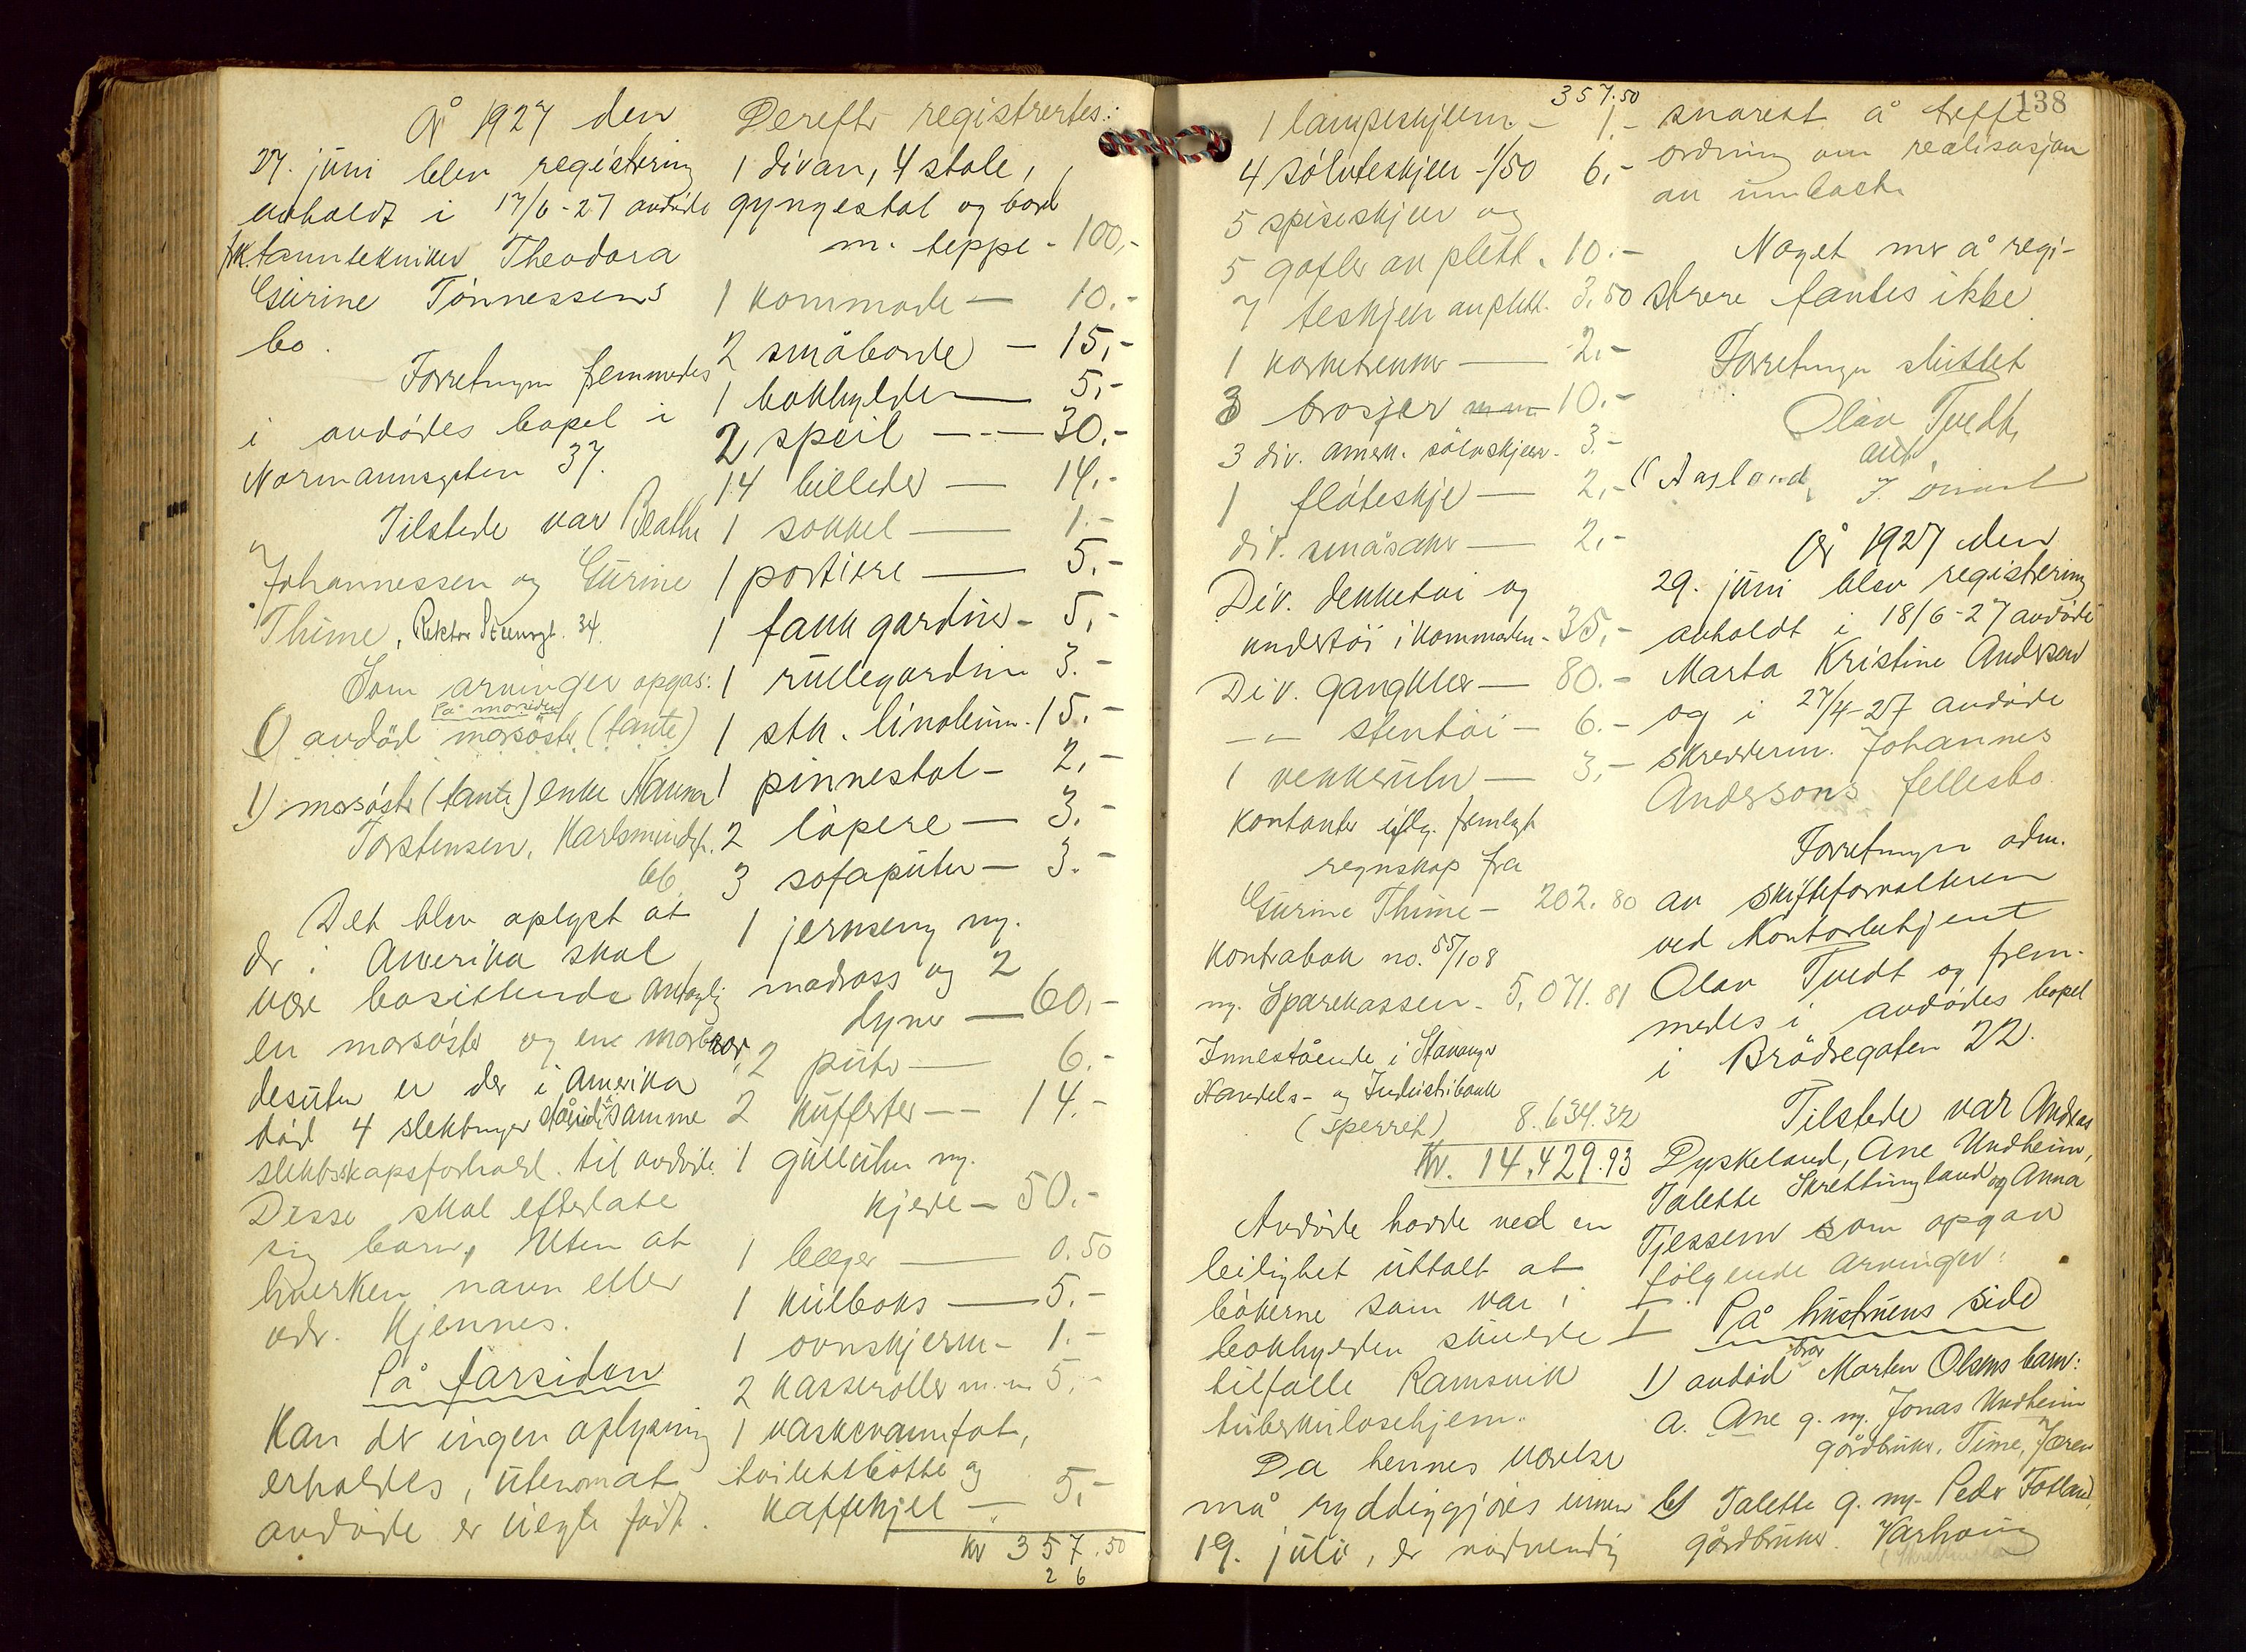 År 1927 den
27. juni blev registrering
avholdt i 17/6-27 avdøde
frk. tanntekniker Theodora
Gurine Tønnessens
bo.
Forretningen fremmedes
i avdødes bopel i
Normannsgaten 37.
Tilstede var Beathe
Johannessen og Gurine
Thime, Rektor Steensgt. 34.
Som arvinger opgas:
På morsiden
1) avdød morsøster (tante)
1) morsøster (tante) enke Hanna
Torstensen, Karlsmindegt.
66.
Det blev oplyst at
der i Amerika skal
være bosittende antagelig
en morsøster og en morbror,
desuten er der i Amerika
død 4 slektninger stående i samme
slektskapsforhold til avdøde.
Disse skal efterlate
sig barn, uten at
hverken navn eller
adr. kjennes.
På farsiden
kan der ingen oplysning
erholdes, utenom at
avdøde er uegte født.
Derefter registrertes:
1 divan, 4 stole,
gyngestol og bord
m. teppe - 100,-
1 kommode - 10.-
2 småborde - 15,-
1 bokhylde - 5,-
2 speil - 30.-
14 billeder - 14.-
1 sokkel - 1.-
1 portiere - 5.-
1 fakk gardiner - 5,-
1 rullegardin 3.-
1 stk. linoleum - 15.-
1 pinnestol - 2,-
2 løpere - 3.-
3 sofaputer - 3.-
1 jernseng m.
madrass og 2
dyner - 60,-
2 puter - 6.-
2 kufferter - 14.-
1 gullur m.
kjede - 50.-
1 beger - 0.50
1 kulboks - 5.-
1 ovnskjerm - 1.-
2 kasseroller m.m 5.-
1 vaskevannfat,
toilettbøtte og
kaffekjel - 5,-
kr 357.50
2 6
357.50
1 lampeskjerm - 1.-
4 sølvteskjeer - 1/50 6,-
5 spiseskjeer og
5 gafler av plett - 10.-
7 teskjeer av plett. 3.50
1 korketrekker - 2.-
3 brosjer m.m 10.-
3 div. amerk. sølvskjeer - 3.-
1 fløteskje - 2,-
div. småsaker - 2,-
Div. dekketøi og
undertøi i kommoden - 35,-
Div. gangklær - 80.-
-"- stentøi - 6.-
1 vekkerur - 3,-
Kontanter iflg. fremlagt
regnskap fra
Gurine Thime - 202.80
Kontrabok no. 55/108
m. Sparekassen - 5,071.81
Innestående i Stavanger
Handels- og Industribank
(sperret) 8.634.32
Kr. 14.429.93
Avdøde hadde ved en
leilighet uttalt at
bøkerne som var i
bokhylden skulde
tilfalle Ramsvik
tuberkulosehjem.
Da hennes værelse
må ryddiggjøres innen
19. juli, er nødvendig
138
snarest å treffe
ordning om realisasjon
av innboet.
Noget mer å regi-
strere fantes ikke.
Forretningen sluttet
Olav Tvedt
aut
Aasland
År 1927 den
29. juni blev registrering
avholdt i 18/6-27 avdøde
Marta Kristine Andersen
og i 27/4-27 avdøde
skredderm. Johannes
Andersons fellesbo.
Forretningen adm.
av skifteforvalteren
ved kontorbetjent
Olav Tvedt og frem-
medes i avdødes bopel
i Brødregaten 22.
Tilstede var Andreas
Dyskeland, Ane Undheim,
Talette Skrettingland og Anna
Tjessem som opgav
følgende arvinger:
I På hustruens side
1) avdød bror Morten Olsens barn:
a. Ane g. m. Jonas Undheim
gårdbruker, Time, Jæren
b) Talette g. m. Peder Fotland,
gårdbruker. Varhaug